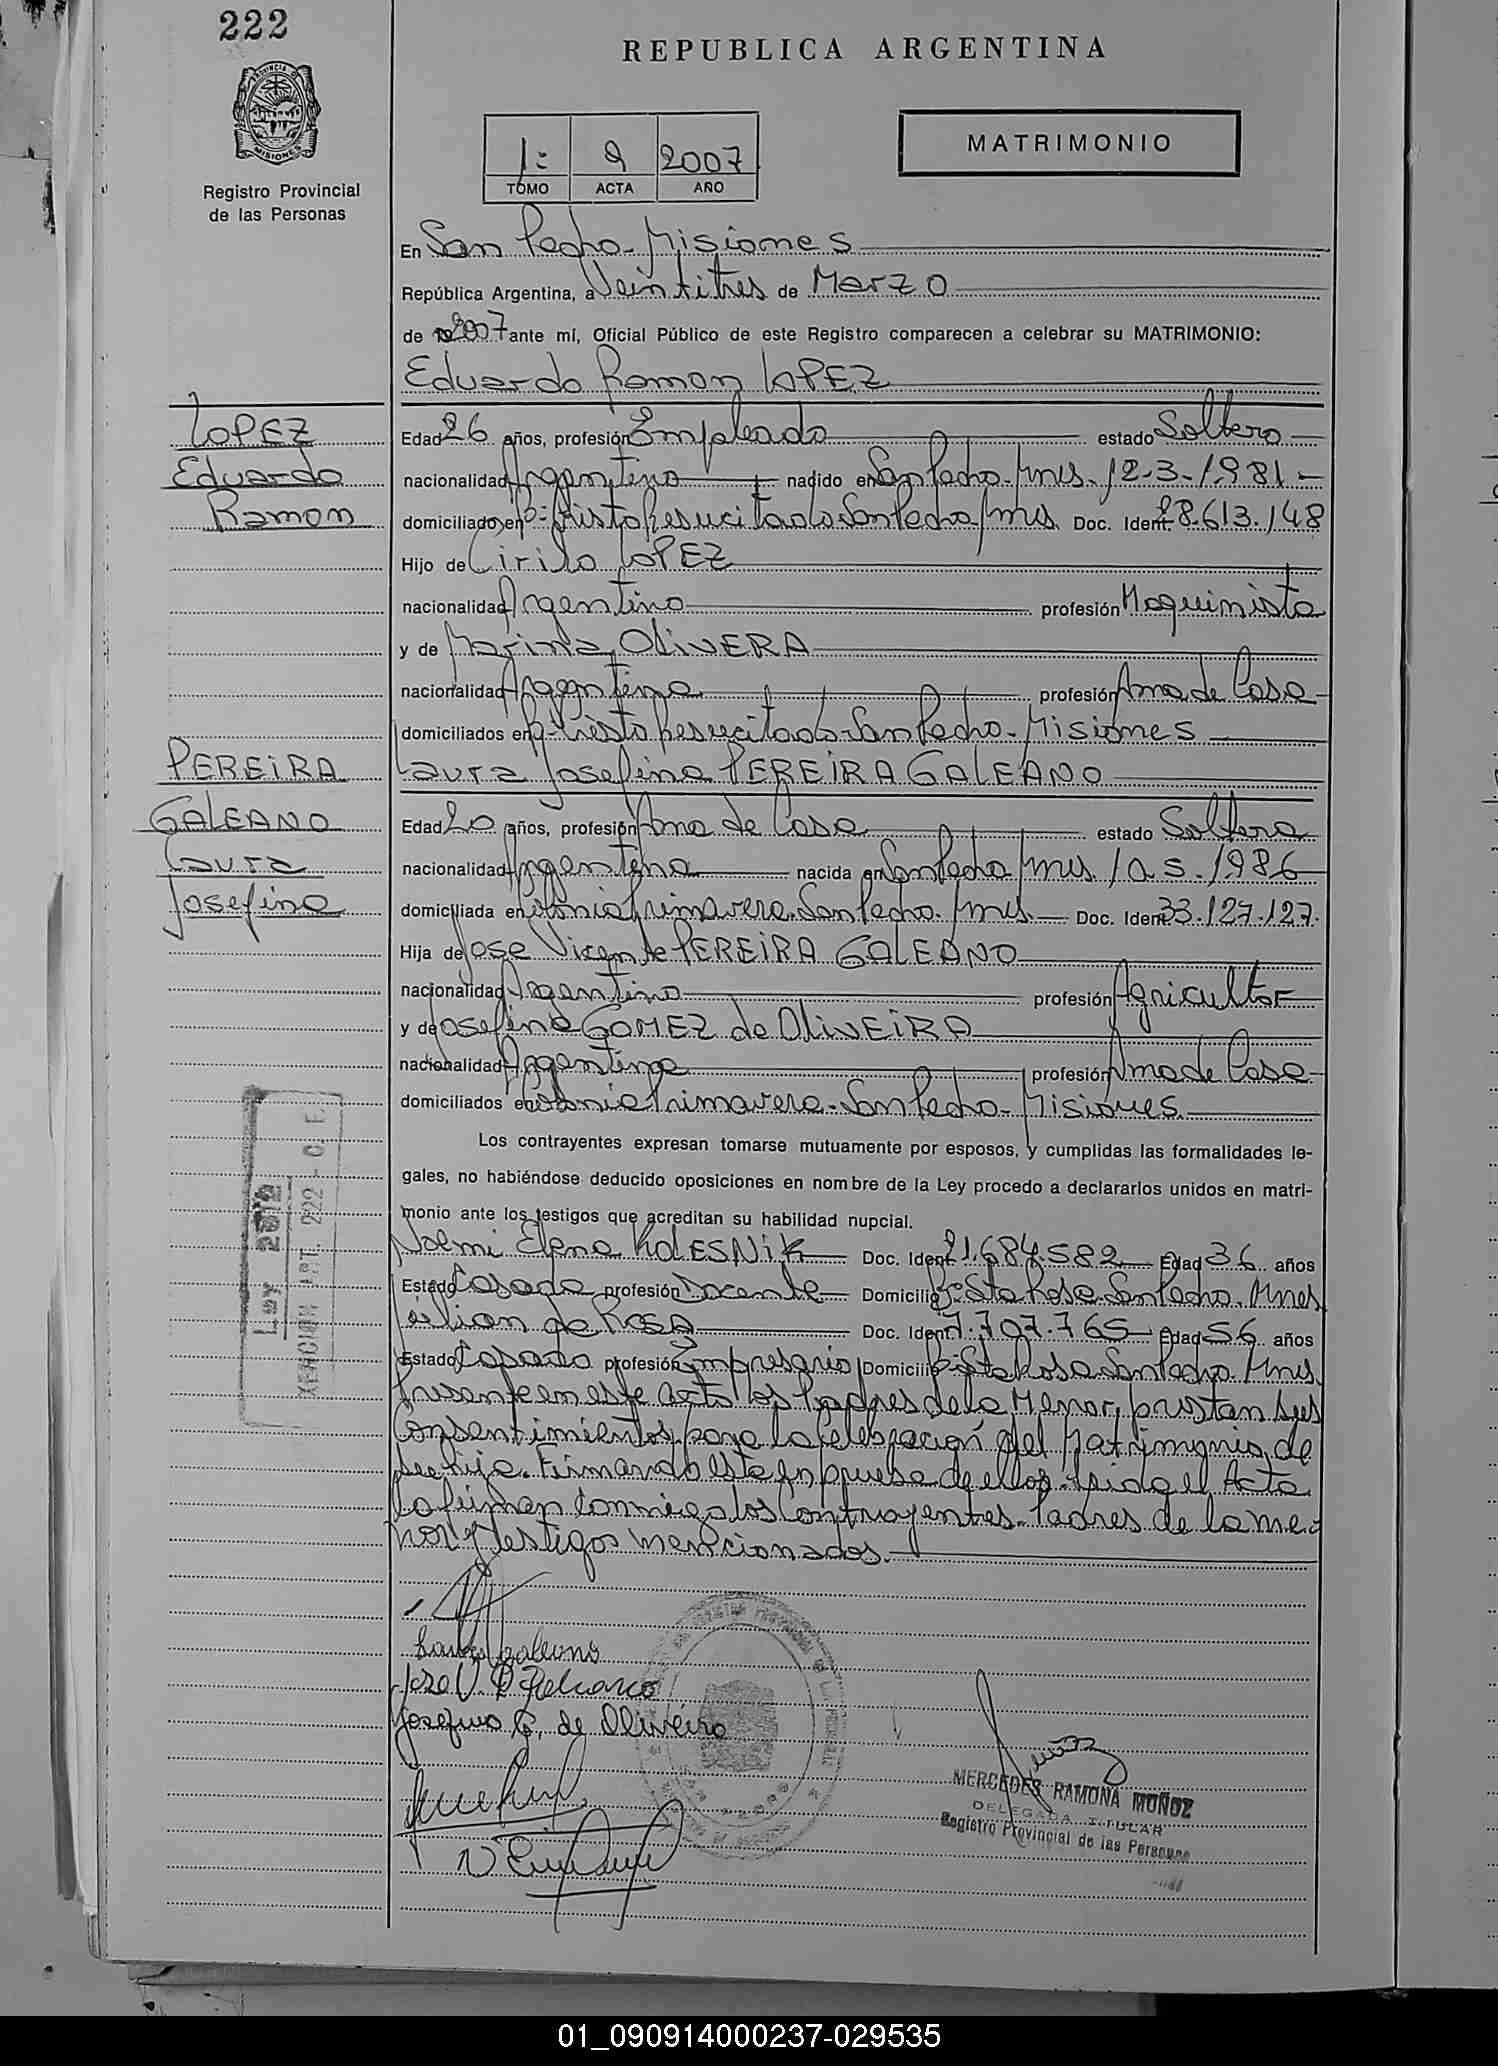 222
REPUBLICA ARGENTINA
PROVINCIA DE
MISIONES
Registro Provincial
de las Personas
1= 9 2007
TOMO ACTA AÑO
MATRIMONIO
En San Pedro - Misiones
República Argentina, a Veintitres de Marzo
de 2007 ante mí, Oficial Público de este Registro comparecen a celebrar su MATRIMONIO:
Eduardo Ramon LOPEZ
LOPEZ
Eduardo
Ramon
Edad 26 años, profesión Empleado estado Soltero
nacionalidad Argentino nacido en San Pedro - Mns. 12-3-1981 -
domiciliado en B= Cristo Resucitado San Pedro - Mns. Doc. Ident. 28.613.148
Hijo de Cirilo LOPEZ
nacionalidad Argentino profesión Maquinista
y de Marina OLIVERA
nacionalidad Argentina profesión Ama de Casa
domiciliados en B= Cristo Resucitado - San Pedro - Misiones
PEREIRA
GALEANO
Laura
Josefina
Laura Josefina PEREIRA GALEANO
Edad 20 años, profesión Ama de Casa estado Soltera
nacionalidad Argentina nacida en San Pedro Mns. 1986
domiciliada en Colonia Primavera. San Pedro. Mns. Doc. Ident. 33.127.127.
Hija de Jose Vicente PEREIRA GALEANO
nacionalidad Argentino profesión Agricultor
y de Josefina GOMEZ de OLIVEIRA
nacionalidad Argentina profesión Ama de Casa
domiciliados en Colonia Primavera - San Pedro - Misiones
Los contrayentes expresan tomarse mutuamente por esposos, y cumplidas las formalidades le-
gales, no habiéndose deducido oposiciones en nombre de la Ley procedo a declararlos unidos en matri-
monio ante los testigos que acreditan su habilidad nupcial.
Noemi Elena KOLESNIK Doc. Ident. 21.684.582 Edad 36 años
Estado Casada profesión Docente Domicilio B= Sta Rosa San Pedro. Mnes
de ROSA Doc. Ident. 7.707.765 Edad 56 años
Estado Casado profesión Empresario Domicilio B= Sta Rosa San Pedro. Mnes.
Presente en este acto los Padres de la Menor, prestan sus
Consentimientos para la celebración del Matrimonio de
su hija. Firmando esta en prueba de ellos. Leida el Acta
la firman Conmigo los Contrayentes. Padres de la me-
nor y testigos mencionados.
Ley 2970
ART. 222 - C. F.
Galeano
Jose V. P Galeano
Josefina G. de Oliveira
MERCEDES RAMONA MUÑOZ
DELEGADA TITULAR
Registro Provincial de las Personas
01_090914000237-029535